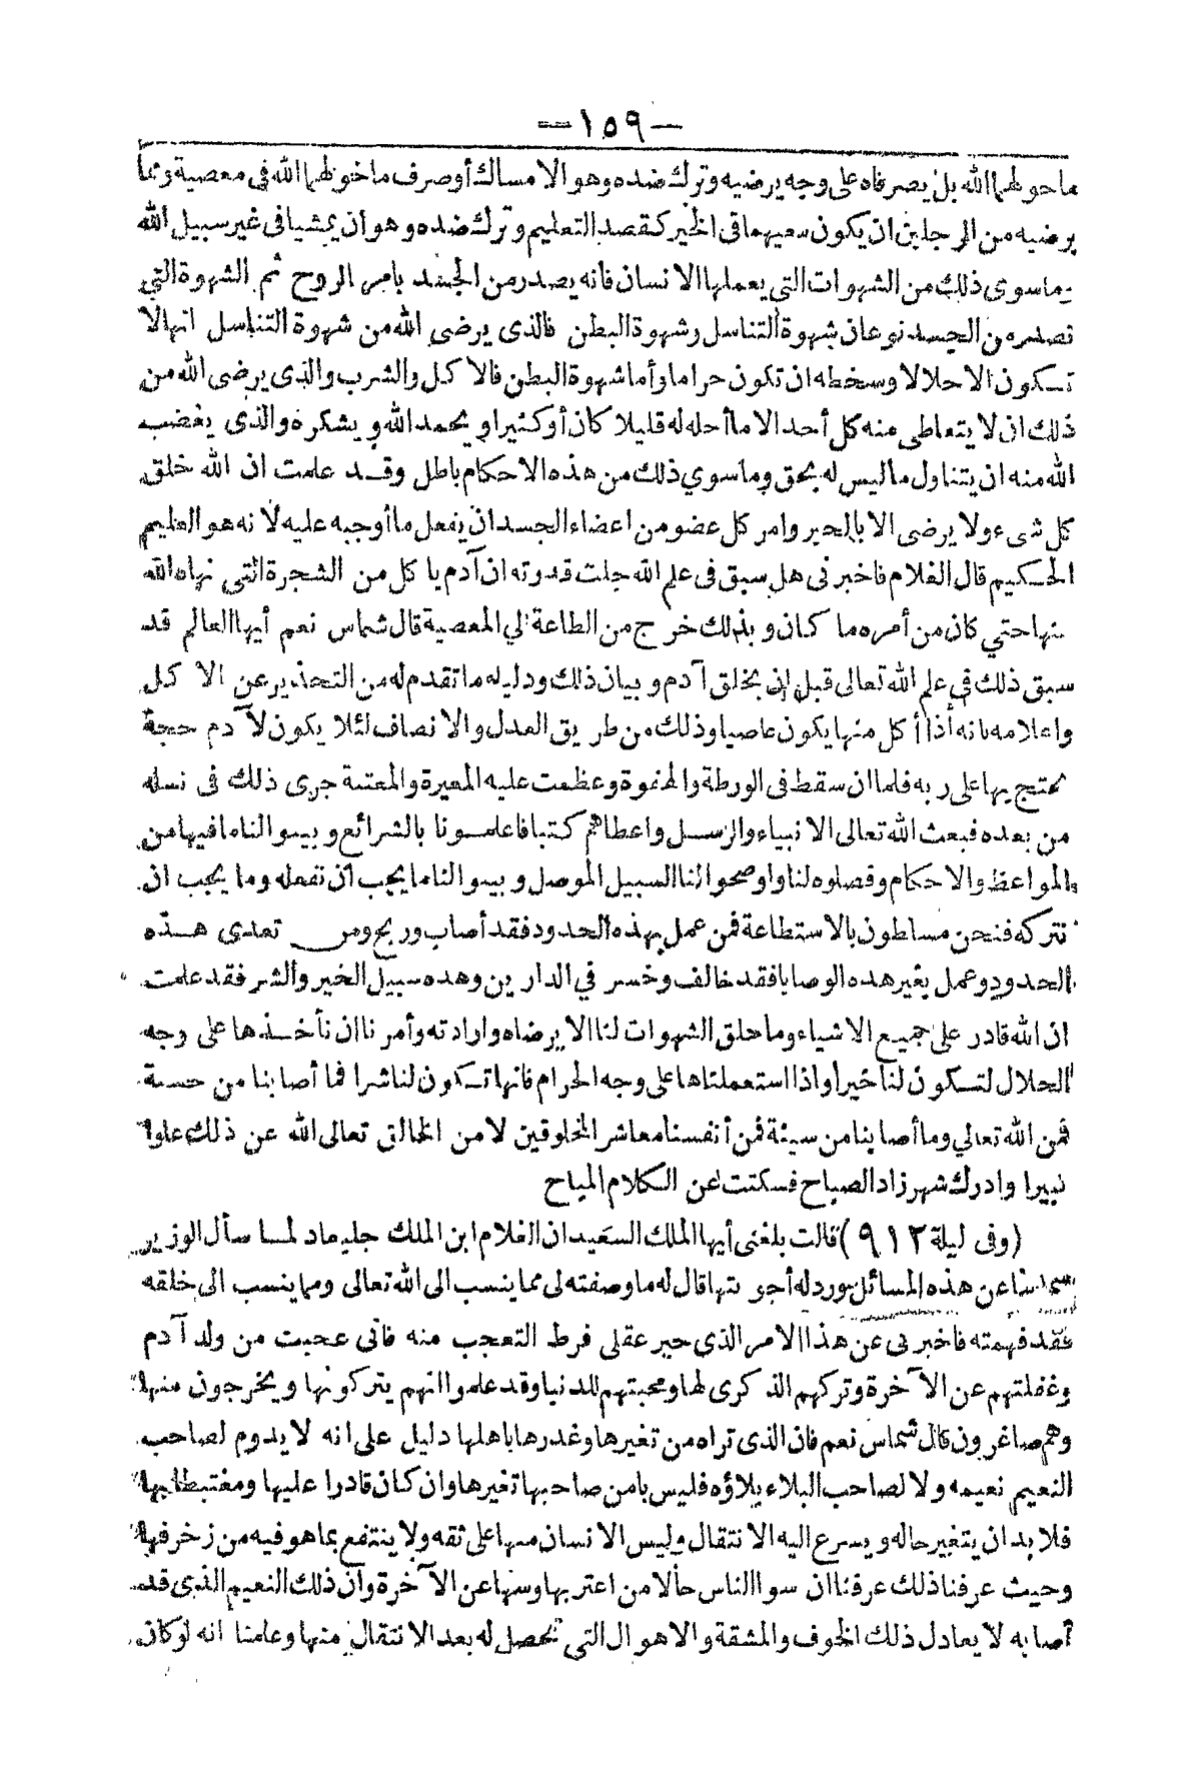 — ١٥٩ —
ما حولهما الله بل يصرفاه على وجه يرضيه وترك ضده وهو الامساك أو صرف ما خولهما الله فى معصية ومما
يرضيه من الرجلين ان يكون سعيهما فى الخير كقصد التعليم وترك ضده وهو ان يمشيا فى غير سبيل الله
وما سوى ذلك من الشهوات التى يعملها الانسان فانه يصدر من الجسد بامر الروح ثم الشهوة التى
تصدر من الجسد نوعان شهوة التناسل وشهوة البطن فالذى يرضى الله من شهوة التناسل انها لا
تكون الا حلالا وسخطه ان تكون حراما وأما شهوة البطن فالاكل والشرب والذى يرضى الله من
ذلك ان لا يتعاطى منه كل أحد الا ما أحله له قليلا كان أو كثيرا ويحمد الله ويشكره والذى يغضب
الله منه ان يتناول ما ليس له بحق وما سوي ذلك من هذه الاحكام باطل وقد علمت ان الله خلق
كل شىء ولا يرضى الا بالخير وامر كل عضو من اعضاء الجسد ان يفعل ما أوجبه عليه لانه هو العليم
الحكيم قال الغلام فاخبرنى هل سبق فى علم الله جلت قدرته ان آدم ياكل من الشجرة التى نهاه الله
عنها حتي كان من أمره ما كان وبذلك خرج من الطاعة الي المعصية قال شماس نعم أيها العالم قد
سبق ذلك فى علم الله تعالى قبل ان يخلق آدم وبيان ذلك ودليله ما تقدم له من التحذير عن الاكل
واعلامه بانه أذا أكل منها يكون عاصيا وذلك من طريق العدل والانصاف لئلا يكون لآدم حجة
يحتج بها على ربه فلما ان سقط فى الورطة والهفوة وعظمت عليه المعيرة والمعتبة جرى ذلك فى نسله
من بعده فبعث الله تعالى الانبياء والرسل واعطاهم كتبا فاعلمونا بالشرائع وبينوا لنا ما فيها من
المواعظ والاحكام وفصلوه لنا واوضحوا لنا السبيل الموصل وبينوا لنا ما يجب ان نفعله وما يجب ان
نتركه فنحن مسلطون بالاستطاعة فمن عمل بهذه الحدود فقد أصاب وربح ومن تعدى هذه
الحدود وعمل بغير هذه الوصايا فقد خالف وخسر في الدارين وهذه سبيل الخير والشر فقد علمت
ان الله قادر على جميع الاشياء وما خلق الشهوات لنا الا برضاه وارادته وأمرنا ان نأخذها على وجه
الحلال لتكون لنا خيرا واذا استعملناها على وجه الحرام فانها تكون لنا شرا فما أصابنا من حسنة
فمن الله تعالي وما أصابنا من سيئة فمن أنفسنا معاشر المخلوقين لا من الخالق تعالى الله عن ذلك علوا
كبيرا وادرك شهرزاد الصباح فسكتت عن الكلام المباح
(وفى ليلة ٩١٢) قالت بلغنى أيها الملك السعيد ان الغلام ابن الملك جليعاد لما سأل الوزير
شماسا عن هذه المسائل ورد له أجوبتها قال له ما وصفته لى مما ينسب الى الله تعالى ومما ينسب الى خلقه
فقد فهمته فاخبرنى عن هذا الامر الذي حير عقلى فرط التعجب منه فانى عجبت من ولد آدم
وغفلتهم عن الآخرة وتركهم الذكرى لها ومحبتهم للدنيا وقد علموا انهم يتركونها ويخرجون منها
وهم صاغرون قال شماس نعم فان الذى تراه من تغيرها وغدرها باهلها دليل على انه لا يدوم لصاحب
النعيم نعيمه ولا لصاحب البلاء بلاؤه فليس يامن صاحبها تغيرها وان كان قادرا عليها ومغتبطا بها
فلا بد ان يتغير حاله ويسرع اليه الانتقال وليس الانسان منها على ثقه ولا ينتفع بما هو فيه من زخرفها
وحيث عرفنا ذلك عرفنا ان سوا الناس حالا من اغتر بها وسها عن الآخرة وأن ذلك النعيم الذى قد
أصابه لا يعادل ذلك الخوف والمشقة والاهوال التى تحصل له بعد الانتقال منها وعلمنا انه لو كان